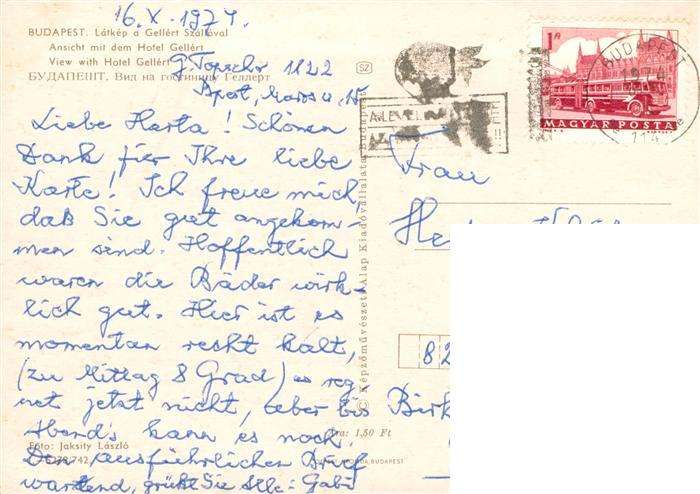 16.X.1974.
BUDAPEST. Látkép a Gellért Szállóval
Ansicht mit dem Hotel Gellért
View with Hotel Gellért
БУДАПЕШТ. Вид на гостиницу Геллерт
1122
Liebe Herta! Schönen
Dank für Ihre liebe
Karte! Ich freue mich,
daß Sie gut angekom-
men sind. Hoffentlich
waren die Bäder wirk-
lich gut. Hier ist es
momentan recht kalt,
(zu Mittag 8 Grad) es reg-
net jetzt nicht, aber bis
Abends kann es noch.
Den ausführlichen Brief
wartend, grüßt Sie Alle: Gabi
Foto: Jaksity László
Ára: 1,50 Ft
BUDAPEST
© Képzőművészeti Alap Kiadóvállalata Budapest
SZ
1Ft
MAGYAR POSTA
BUDAPEST
Frau
82